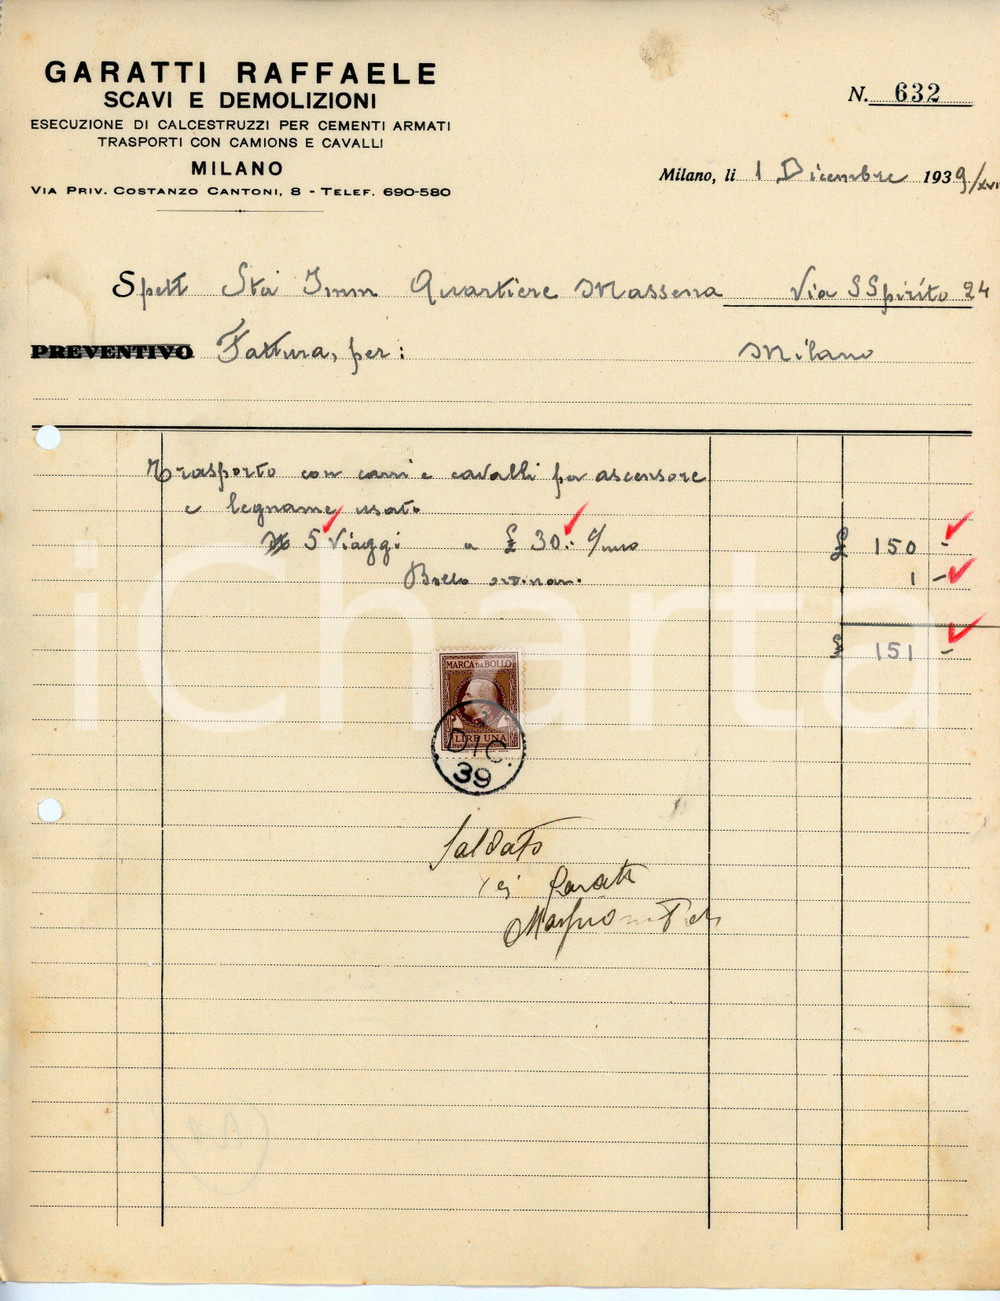 GARATTI RAFFAELE
SCAVI E DEMOLIZIONI
ESECUZIONE DI CALCESTRUZZI PER CEMENTI ARMATI
TRASPORTI CON CAMIONS E CAVALLI
MILANO
VIA PRIV. COSTANZO CANTONI, 8 - TELEF. 690-580
N. 632
Milano, li 1 Dicembre 1939/XVI
Spett Sta Imm Quartiere Massena Via SSpirito 24
PREVENTIVO Fattura, per: Milano
Trasporto con carri e cavalli per ascensore
e legname usato
5 Viaggi a £ 30.- c/uno £ 150 -
Bollo 1 -
£ 151 -
MARCA DA BOLLO
LIRE UNA
DIC.
39
Saldato
Garatti
iCharta